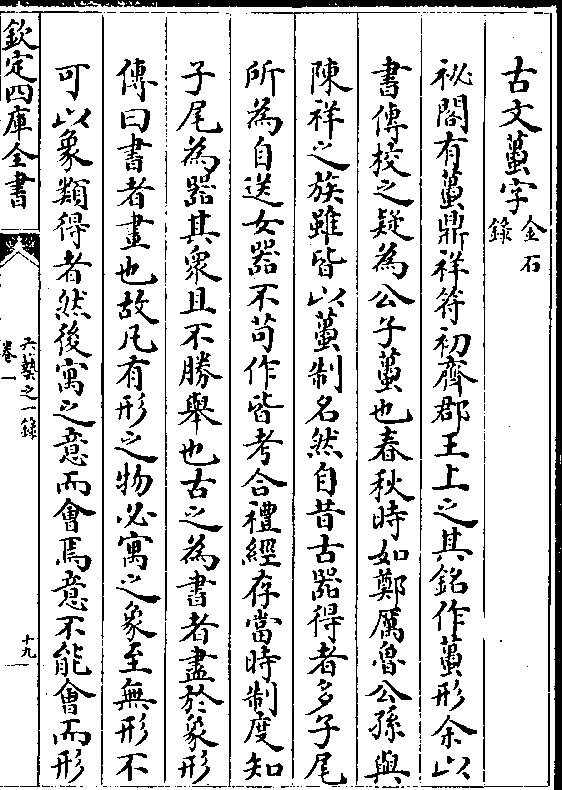 古文蠆字金石錄
祕閣有蠆鼎祥符初齊郡王上之其銘作蠆形余以
書傳校之疑為公子蠆也春秋時如鄭厲魯公孫與
陳祥之族雖皆以蠆制名然自昔古器得者多子尾
所為自送女器不苟作皆考合禮經存當時制度知
子尾為器其衆且不勝舉也古之為書者盡於象形
傳曰書者畫也故凡有形之物必寓之象至無形不
可以象類得者然後寓之意而會焉意不能會而形
欽定四庫全書
六藝之一錄
卷一
十九